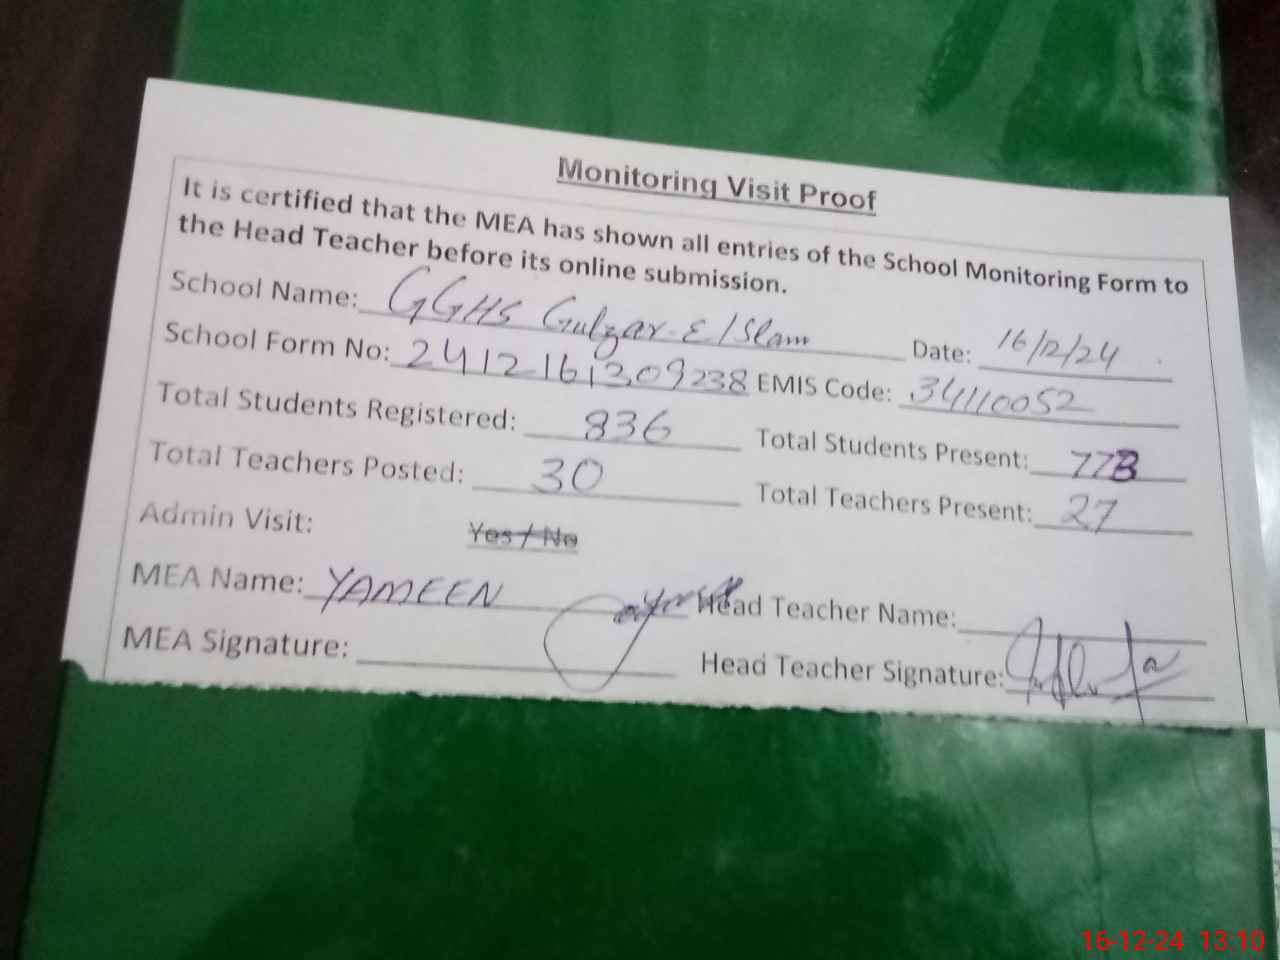 Monitoring Visit Proof
It is certified that the MEA has shown all entries of the School Monitoring Form to
the Head Teacher before its online submission.
School Name: GGHS Gulzar-E-Islam Date: 16/12/24
School Form No: 2412161309238 EMIS Code: 34110052
Total Students Registered: 836 Total Students Present: 773
Total Teachers Posted: 30 Total Teachers Present: 27
Admin Visit: Yes / No
MEA Name: YAMEEN Head Teacher Name:
MEA Signature: Head Teacher Signature:
16-12-24 13:10